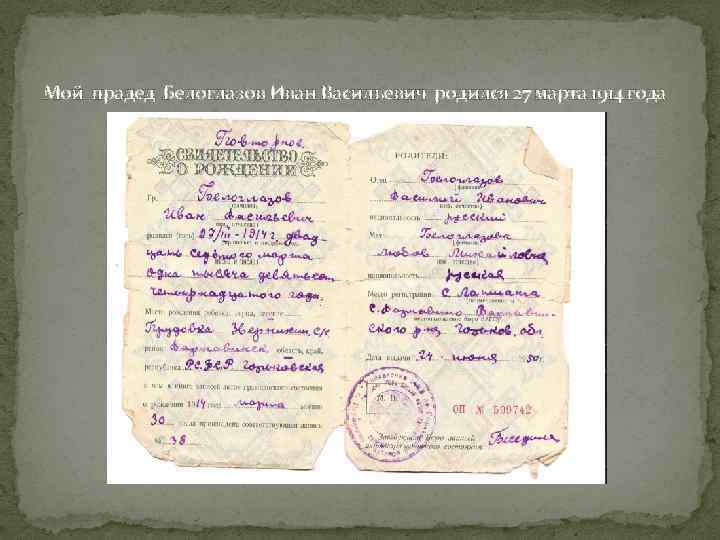 Мой прадед Белоглазов Иван Васильевич родился 27 марта 1914 года
Повторное.
СВИДЕТЕЛЬСТВО
О РОЖДЕНИИ
Гр. Белоглазов
Иван Васильевич
27/III-1914 г. двад-
цать седьмого марта
одна тысяча девятьсот
четырнадцатого года.
Место рождения ребенка: город, селение
Трудовка
район Варнавинск область, край,
республика РСФСР Горьковская
о чем в книге записей актов гражданского состояния
о рождении 1914 года марта месяца
30 числа произведена соответствующая запись
№ 38
РОДИТЕЛИ:
Отец Белоглазов
(фамилия)
Василий Иванович
национальность русский
Мать Белоглазова
(фамилия)
Любовь Михайловна
национальность русская
Место регистрации с. Лапшанга
с. Варнавино Варнавин-
ского р-на Горьков. обл.
Дата выдачи 24 июня 1950 г.
М. П.
ОП № 599742
Заведующий бюро записей
актов гражданского состояния